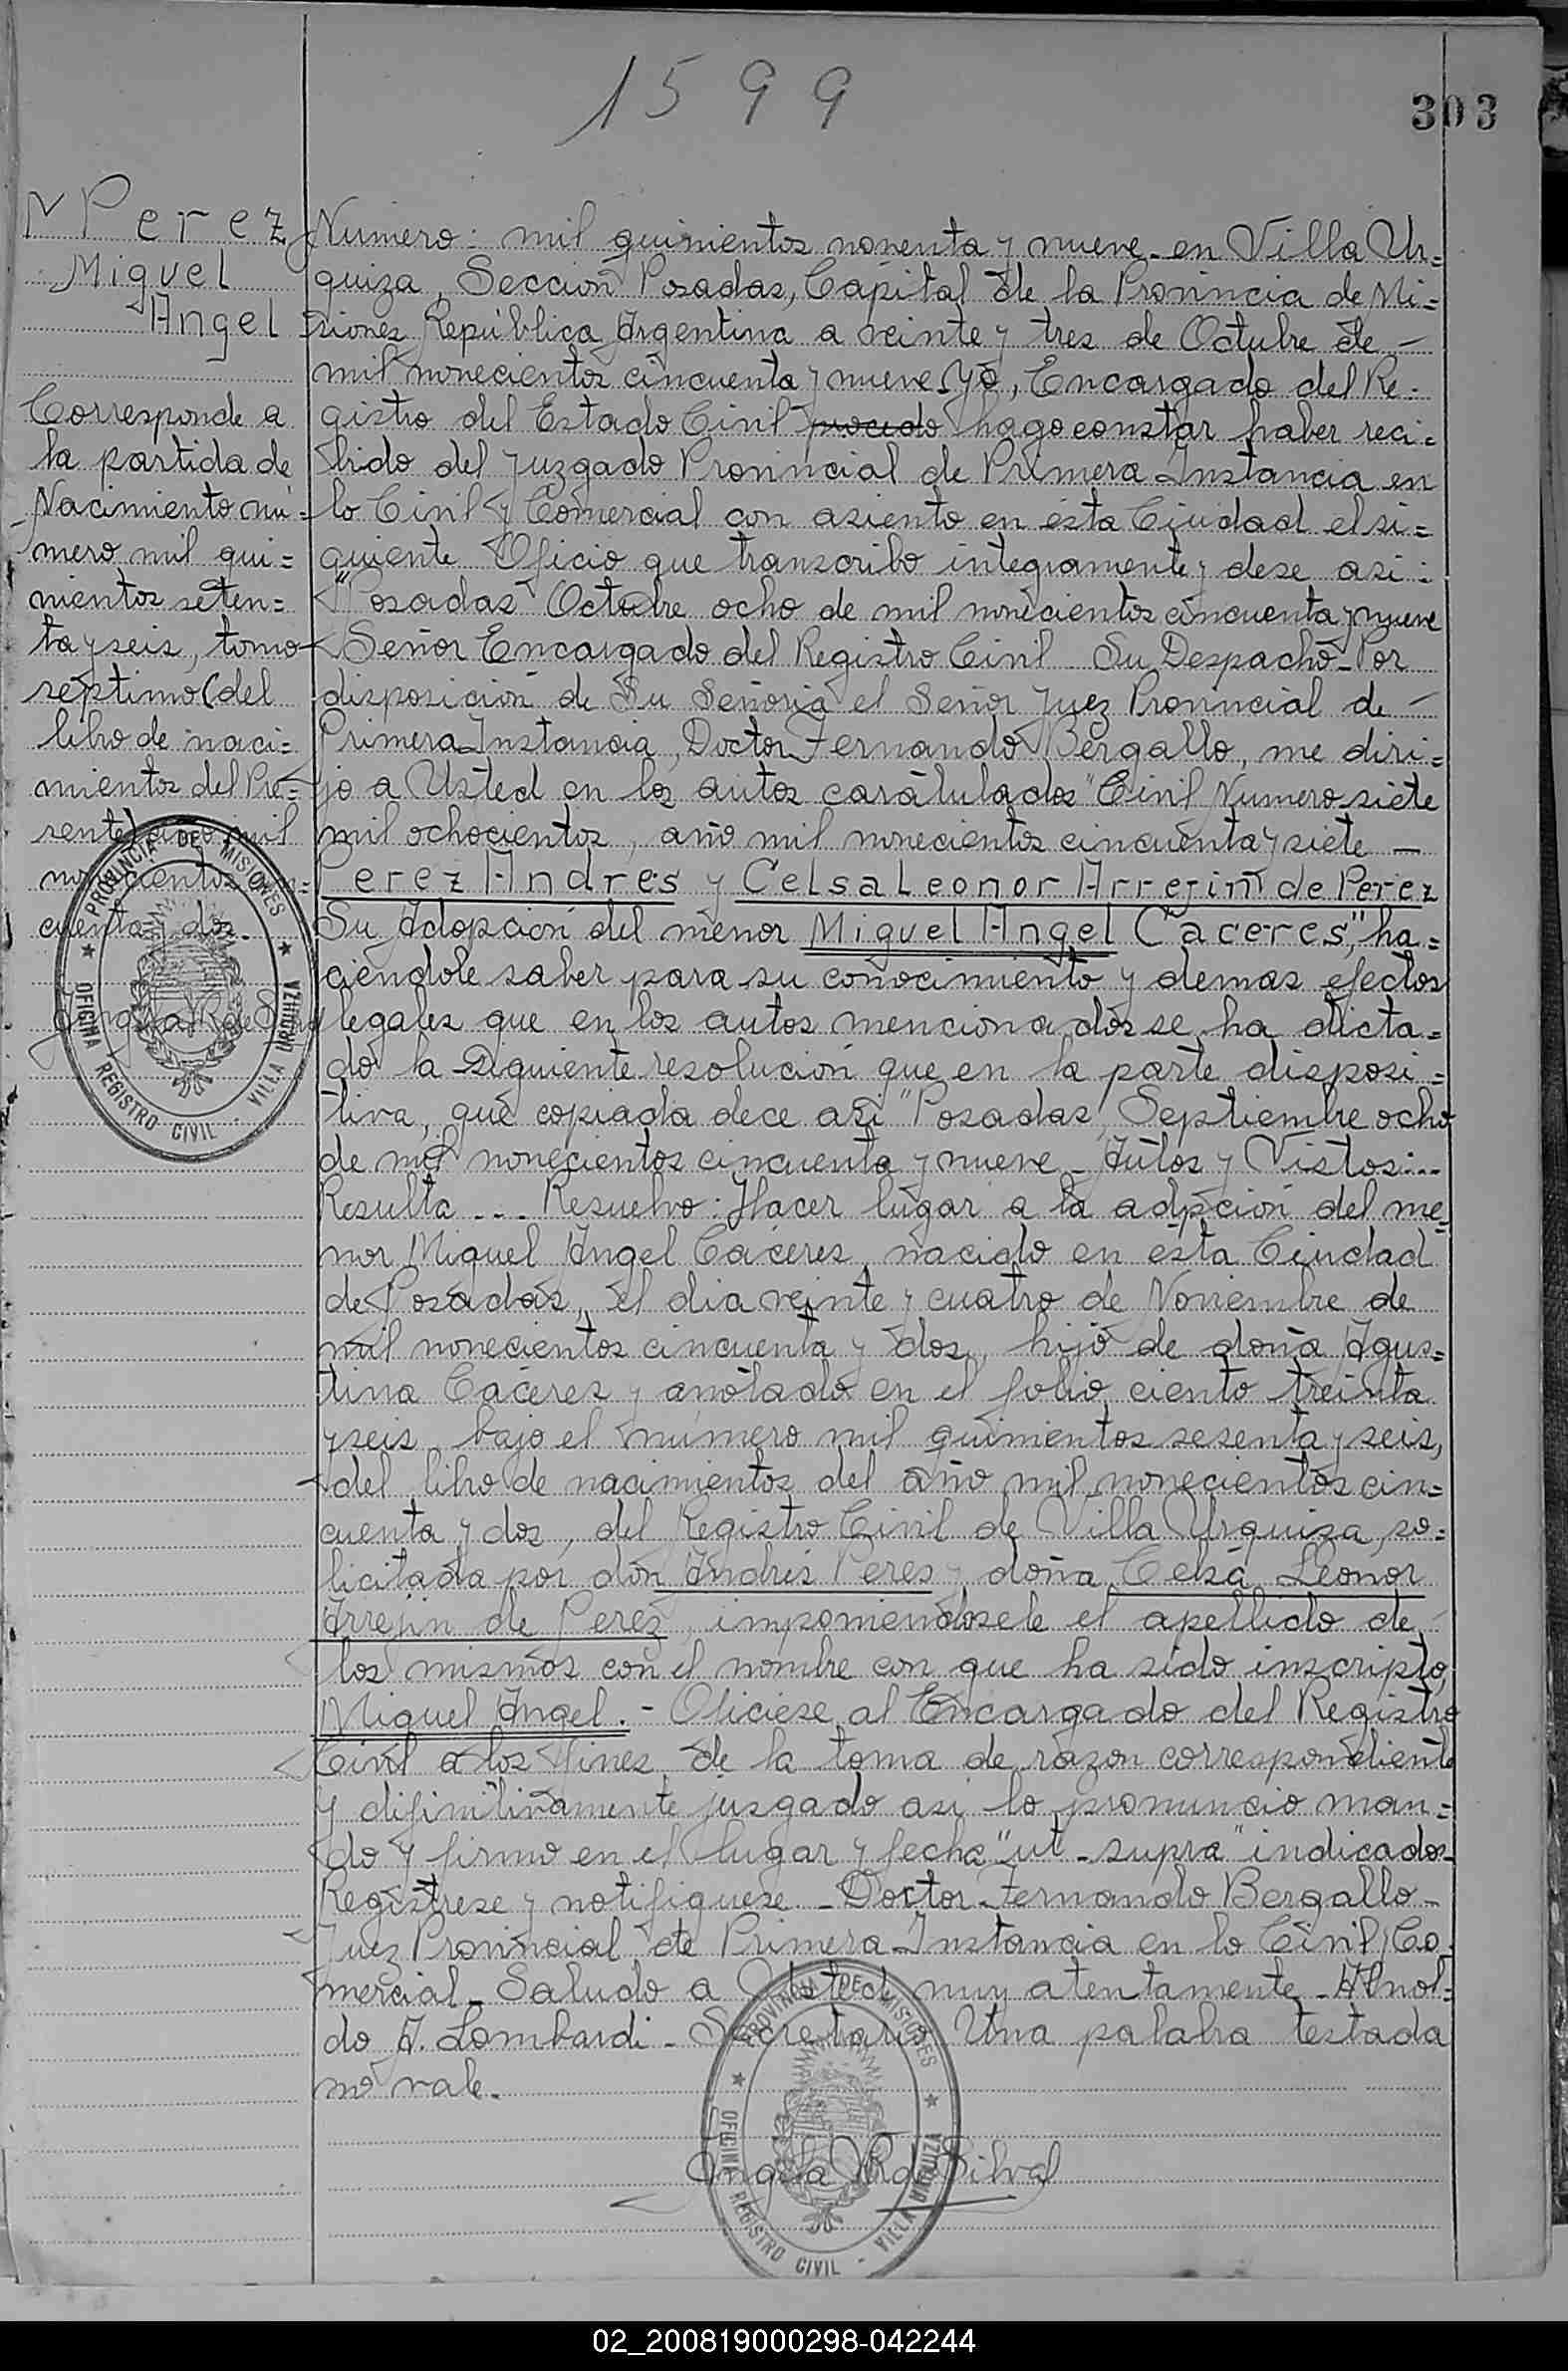 1599
303
N Perez
Miguel
Angel
Corresponde a
la partida de
Nacimiento nú=
mero mil qui=
nientos seten=
ta y seis, tomo
septimo (del
libro de naci=
mientos del Pre=
sente) año mil
novecientos cin=
cuenta y dos.
PROVINCIA DE MISIONES
OFICINA REGISTRO CIVIL - VILLA URQUIZA
Numero: mil quinientos noventa y nueve_ en Villa Ur=
quiza, Sección Posadas, Capital de la Provincia de Mi=
siones República Argentina a veinte y tres de Octubre de -
mil novecientos cincuenta y nueve_ Yo, Encargado del Re=
gistro del Estado Civil procedo hago constar haber reci=
bido del Juzgado Provincial de Primera Instancia en
lo Civil y Comercial con asiento en esta Ciudad el si=
guiente Oficio que transcribo integramente y dese asi:
"Posadas Octubre ocho de mil novecientos cincuenta y nueve
Señor Encargado del Registro Civil Su Despacho_ Por
disposición de Su Señoria el Señor Juez Provincial de -
Primera Instancia, Doctor Fernando Bergallo, me diri=
jo a Usted en los autos caratulados "Civil Numero siete
mil ochocientos, año mil novecientos cincuenta y siete -
Perez Andres y Celsa Leonor Arrejin de Perez
Su Adopción del menor Miguel Angel Caceres", ha=
ciendole saber para su conocimiento y demas efectos
legales que en los autos mencionados se ha dicta=
do la siguiente resolución que en la parte disposi=
tiva, que copiada dece asi "Posadas, Septiembre ocho
de mil novecientos cincuenta y nueve_ Autos y Vistos:...
Resulta ... Resuelvo: Hacer lugar a la adpción del me=
nor Miguel Angel Cáceres, nacido en esta Ciudad
de Posadas, el dia veinte y cuatro de Noviembre de
mil novecientos cincuenta y dos, hijo de doña Agus=
tina Cáceres y anotado en el folio ciento treinta
y seis bajo el número mil quinientos sesenta y seis,
del libro de nacimientos del año mil novecientos cin=
cuenta y dos, del Registro Civil de Villa Urquiza, so=
licitada por don Andrés Peres y doña Celsa Leonor
Arrejin de Perez, imponiendosele el apellido de -
los mismos con el nombre con que ha sido inscripto,
Miguel Angel. - Oficiese al Encargado del Registro
Civil a los fines de la toma de razon correspondiente
y difinitivamente jusgado asi lo pronuncio man=
do y firmo en el lugar y fecha "ut-supra" indicados_
Registrese y notifiquese_ Doctor Fernando Bergallo_
Juez Provincial de Primera Instancia en lo Civil y Co=
mercial_ Saludo a Usted muy atentamente_ Arnol=
do A. Lombardi_ Secretario Una palabra testada
no vale.
Angela R de Silva
PROVINCIA DE MISIONES
OFICINA REGISTRO CIVIL - VILLA URQUIZA
02_200819000298-042244